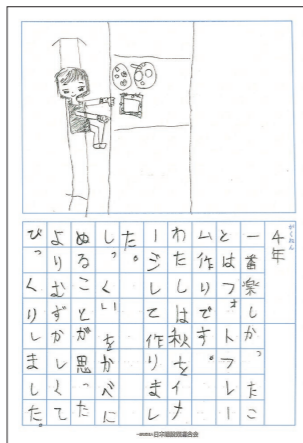 がくねん
4年
一番楽しかったこ
とはフォトフレー
ム作りです。
わたしは秋をイメ
ージして作りまし
た。
しっくいをかべに
ぬることが思った
よりむずかしくて
びっくりしました。